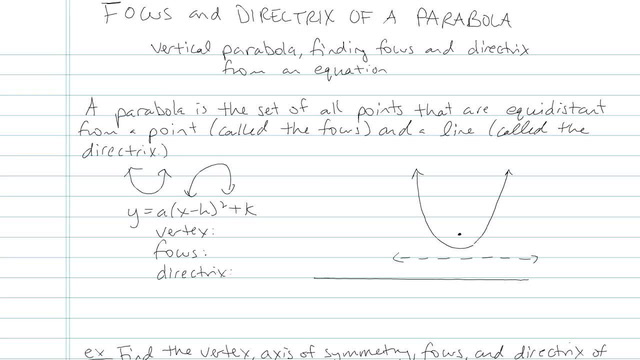 FOCUS and DIRECTRIX OF A PARABOLA
vertical parabola, finding focus and directrix
from an equation
A parabola is the set of all points that are equidistant
from a point (called the focus) and a line (called the
directrix.)
y=a(x-h)²+k
vertex:
focus:
directrix:
ex Find the vertex, axis of symmetry, focus, and directrix of